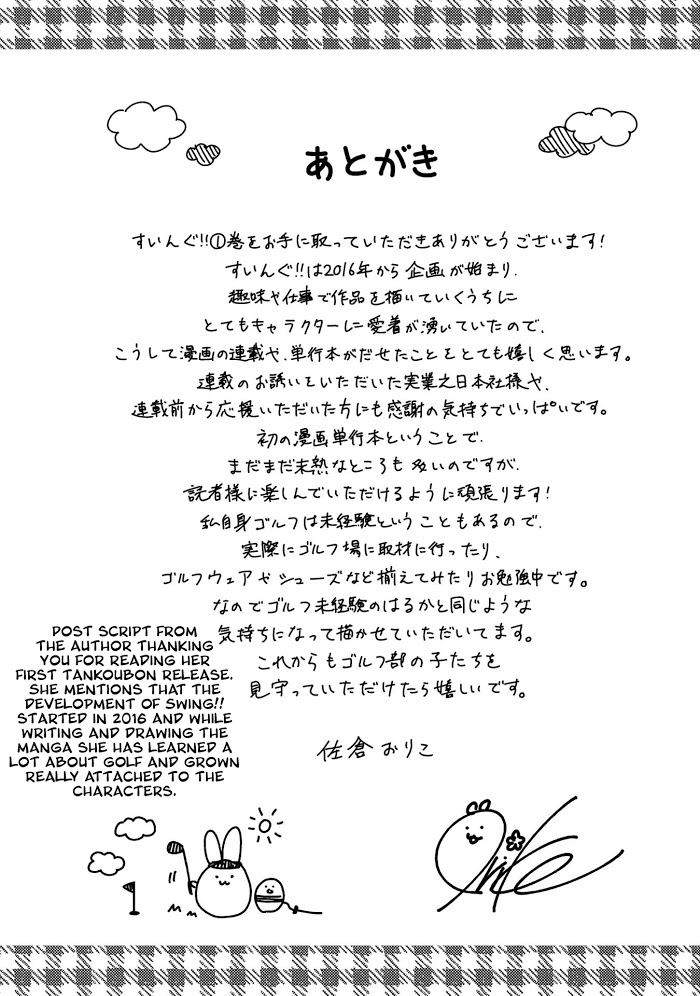 あとがき
すいんぐ!!①巻をお手に取っていただきありがとうございます!
すいんぐ!!は2016年から企画が始まり、
趣味や仕事で作品を描いていくうちに
とてもキャラクターに愛着が湧いていたので、
こうして漫画の連載や、単行本がだせたことをとても嬉しく思います。
連載のお誘いをいただいた実業之日本社様や、
連載前から応援いただいた方にも感謝の気持ちでいっぱいです。
初の漫画単行本ということで、
まだまだ未熟なところも多いのですが、
読者様に楽しんでいただけるように頑張ります!
私自身ゴルフは未経験ということもあるので、
実際にゴルフ場に取材に行ったり、
ゴルフウェアやシューズなど揃えてみたりお勉強中です。
なのでゴルフ未経験のはるかと同じような
気持ちになって描かせていただいてます。
これからもゴルフ部の子たちを
見守っていただけたら嬉しいです。
佐倉おりこ
POST SCRIPT FROM
THE AUTHOR THANKING
YOU FOR READING HER
FIRST TANKOUBON RELEASE.
SHE MENTIONS THAT THE
DEVELOPMENT OF SWING!!
STARTED IN 2016 AND WHILE
WRITING AND DRAWING THE
MANGA SHE HAS LEARNED A
LOT ABOUT GOLF AND GROWN
REALLY ATTACHED TO THE
CHARACTERS.